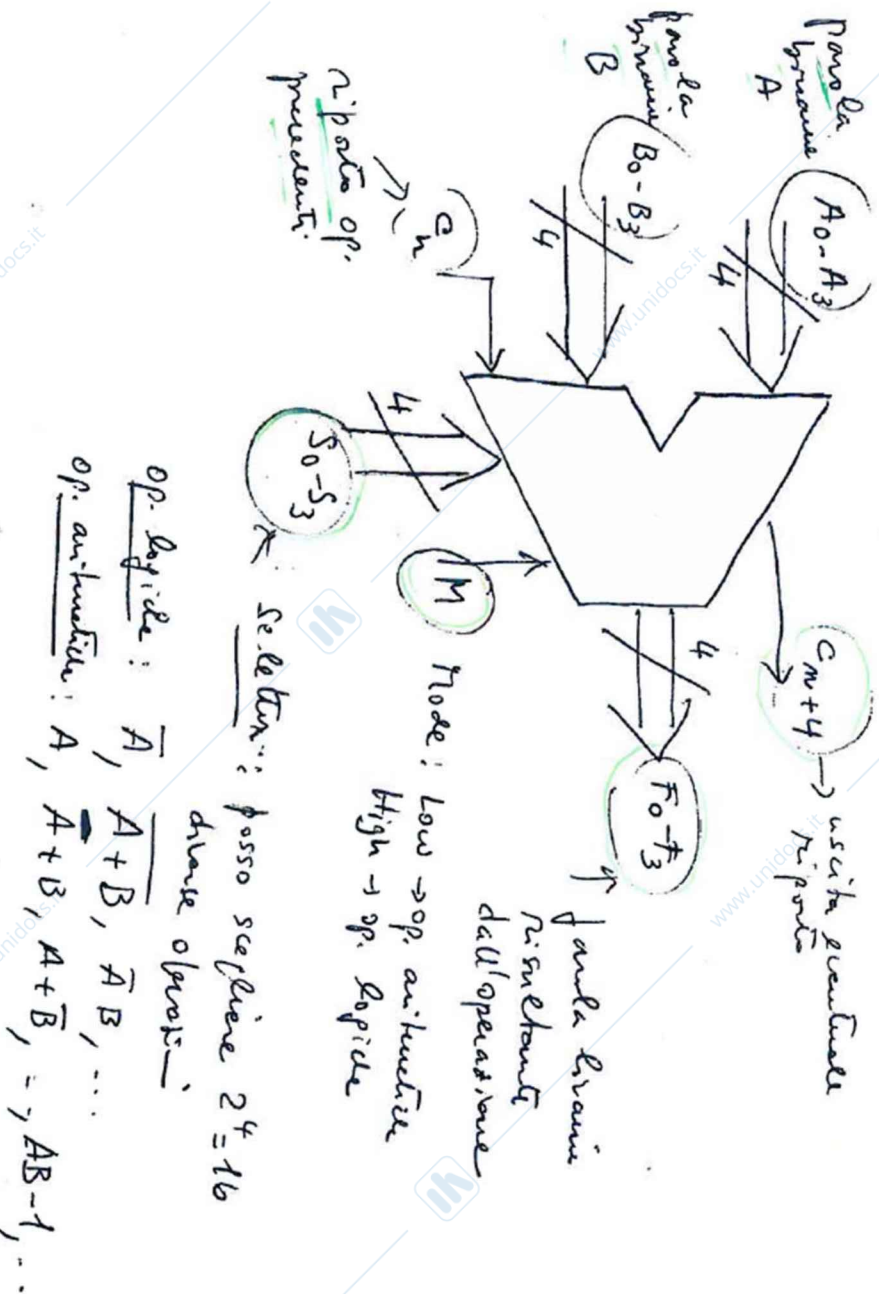 parola
binaria
A
A0-A3
4
parola
binaria
B
B0-B3
4
riporto op.
precedenti.
Cn
Cn+4 → uscita eventuale
riporto
4
F0-F3
parola binaria
risultante
dall'operazione
4
S0-S3
M
Mode: Low → op. aritmetiche
High → op. logiche
Selettori: posso scegliere 2⁴=16
diverse operazioni
op. logiche: A̅, A̅+̅B̅, A̅B, ...
op. aritmetiche: A, A+B, A+B̅, -, AB-1, ...
www.unidocs.it
www.unidocs.it